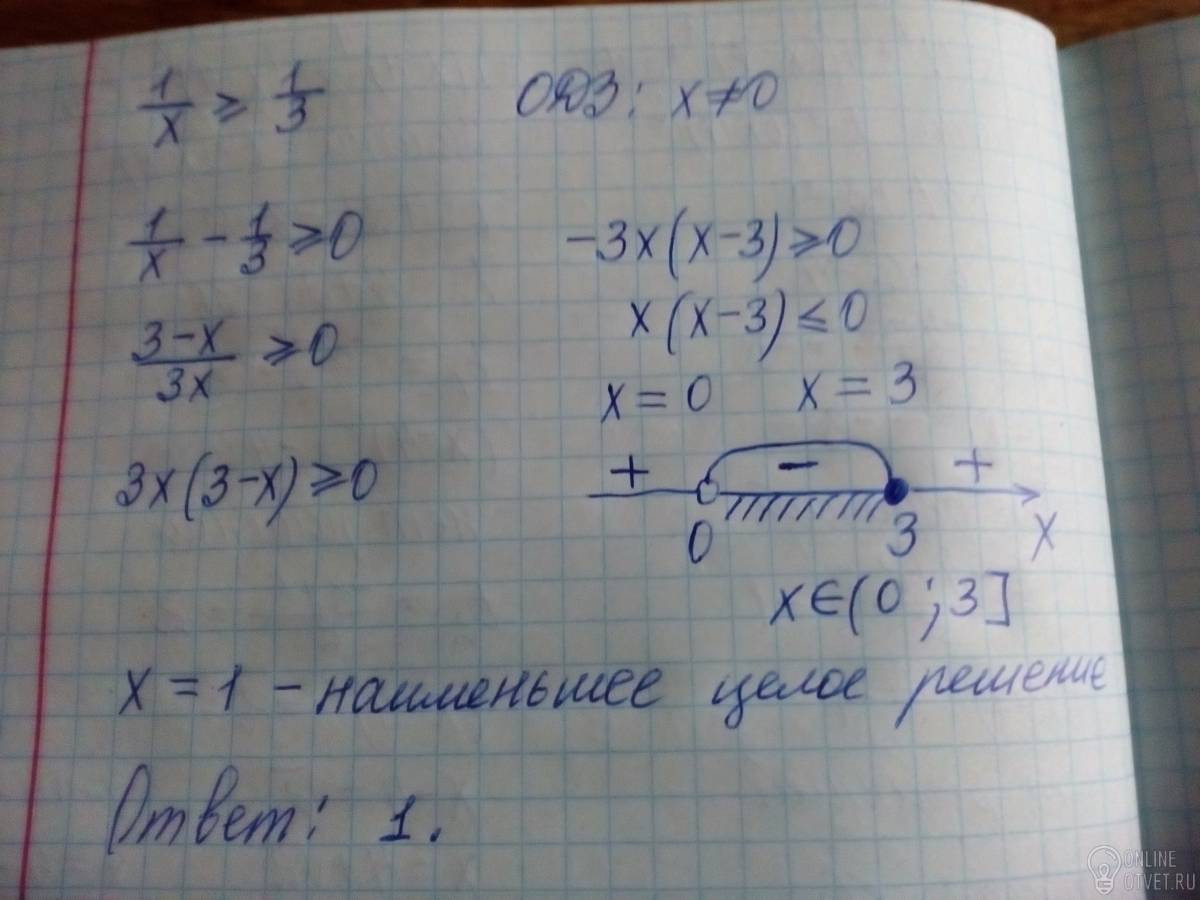 1/x ≥ 1/3
ОДЗ: x≠0
1/x - 1/3 ≥0
(3-x)/3x ≥0
3x(3-x)≥0
-3x(x-3)≥0
x(x-3)≤0
x=0 x=3
+ - +
0 3 x
x∈(0;3]
x=1 - наименьшее целое решение
Ответ: 1.
ONLINE
OTVET.RU